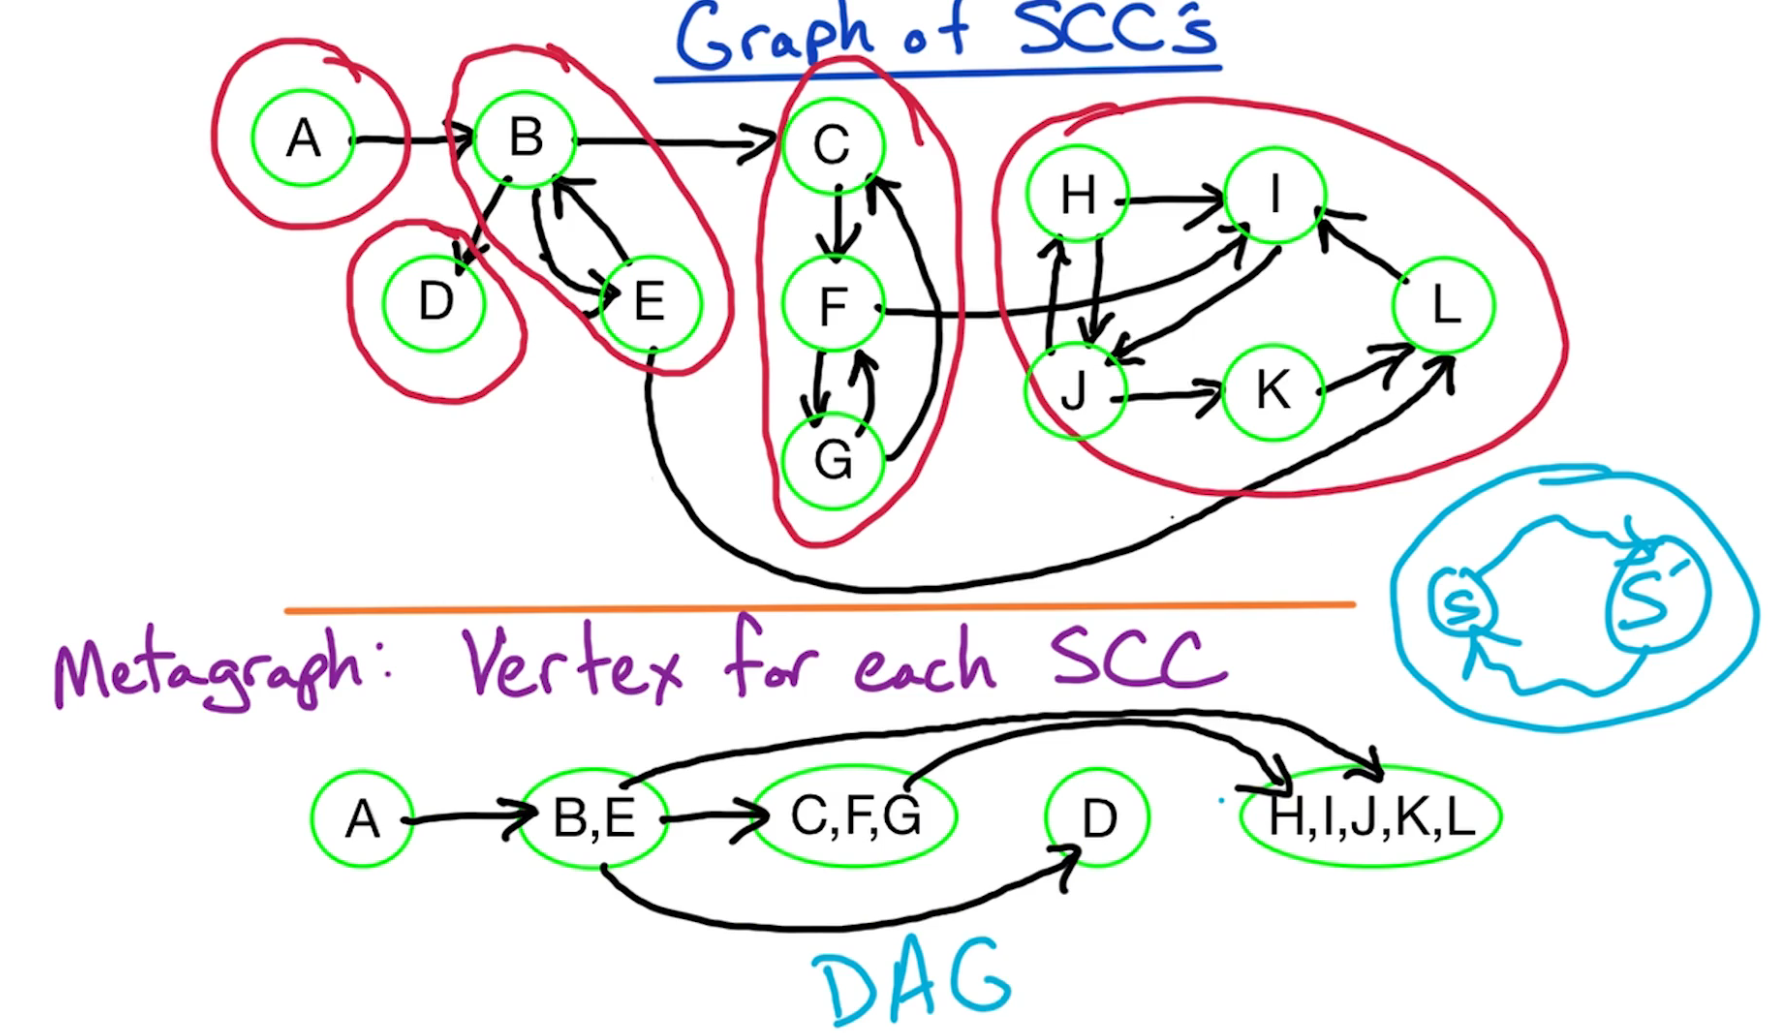 Graph of SCC's
A B C H I
D E F L
J K
G
S S'
Metagraph: Vertex for each SCC
A B,E C,F,G D H,I,J,K,L
DAG